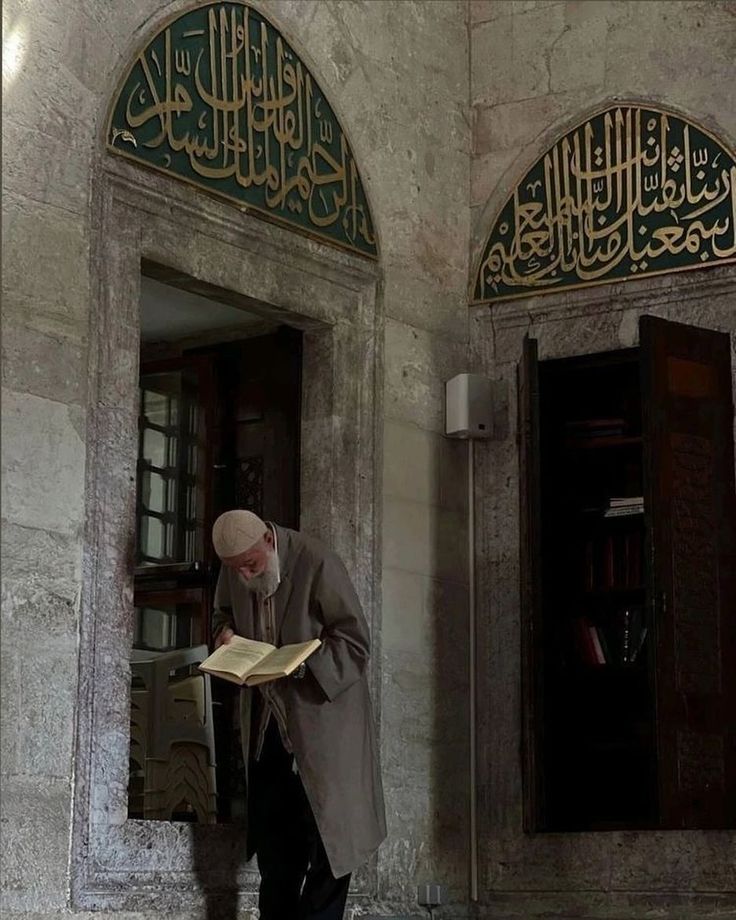 الرحيم الملك القدوس السلام
ربنا تقبل منا انك انت السميع العليم